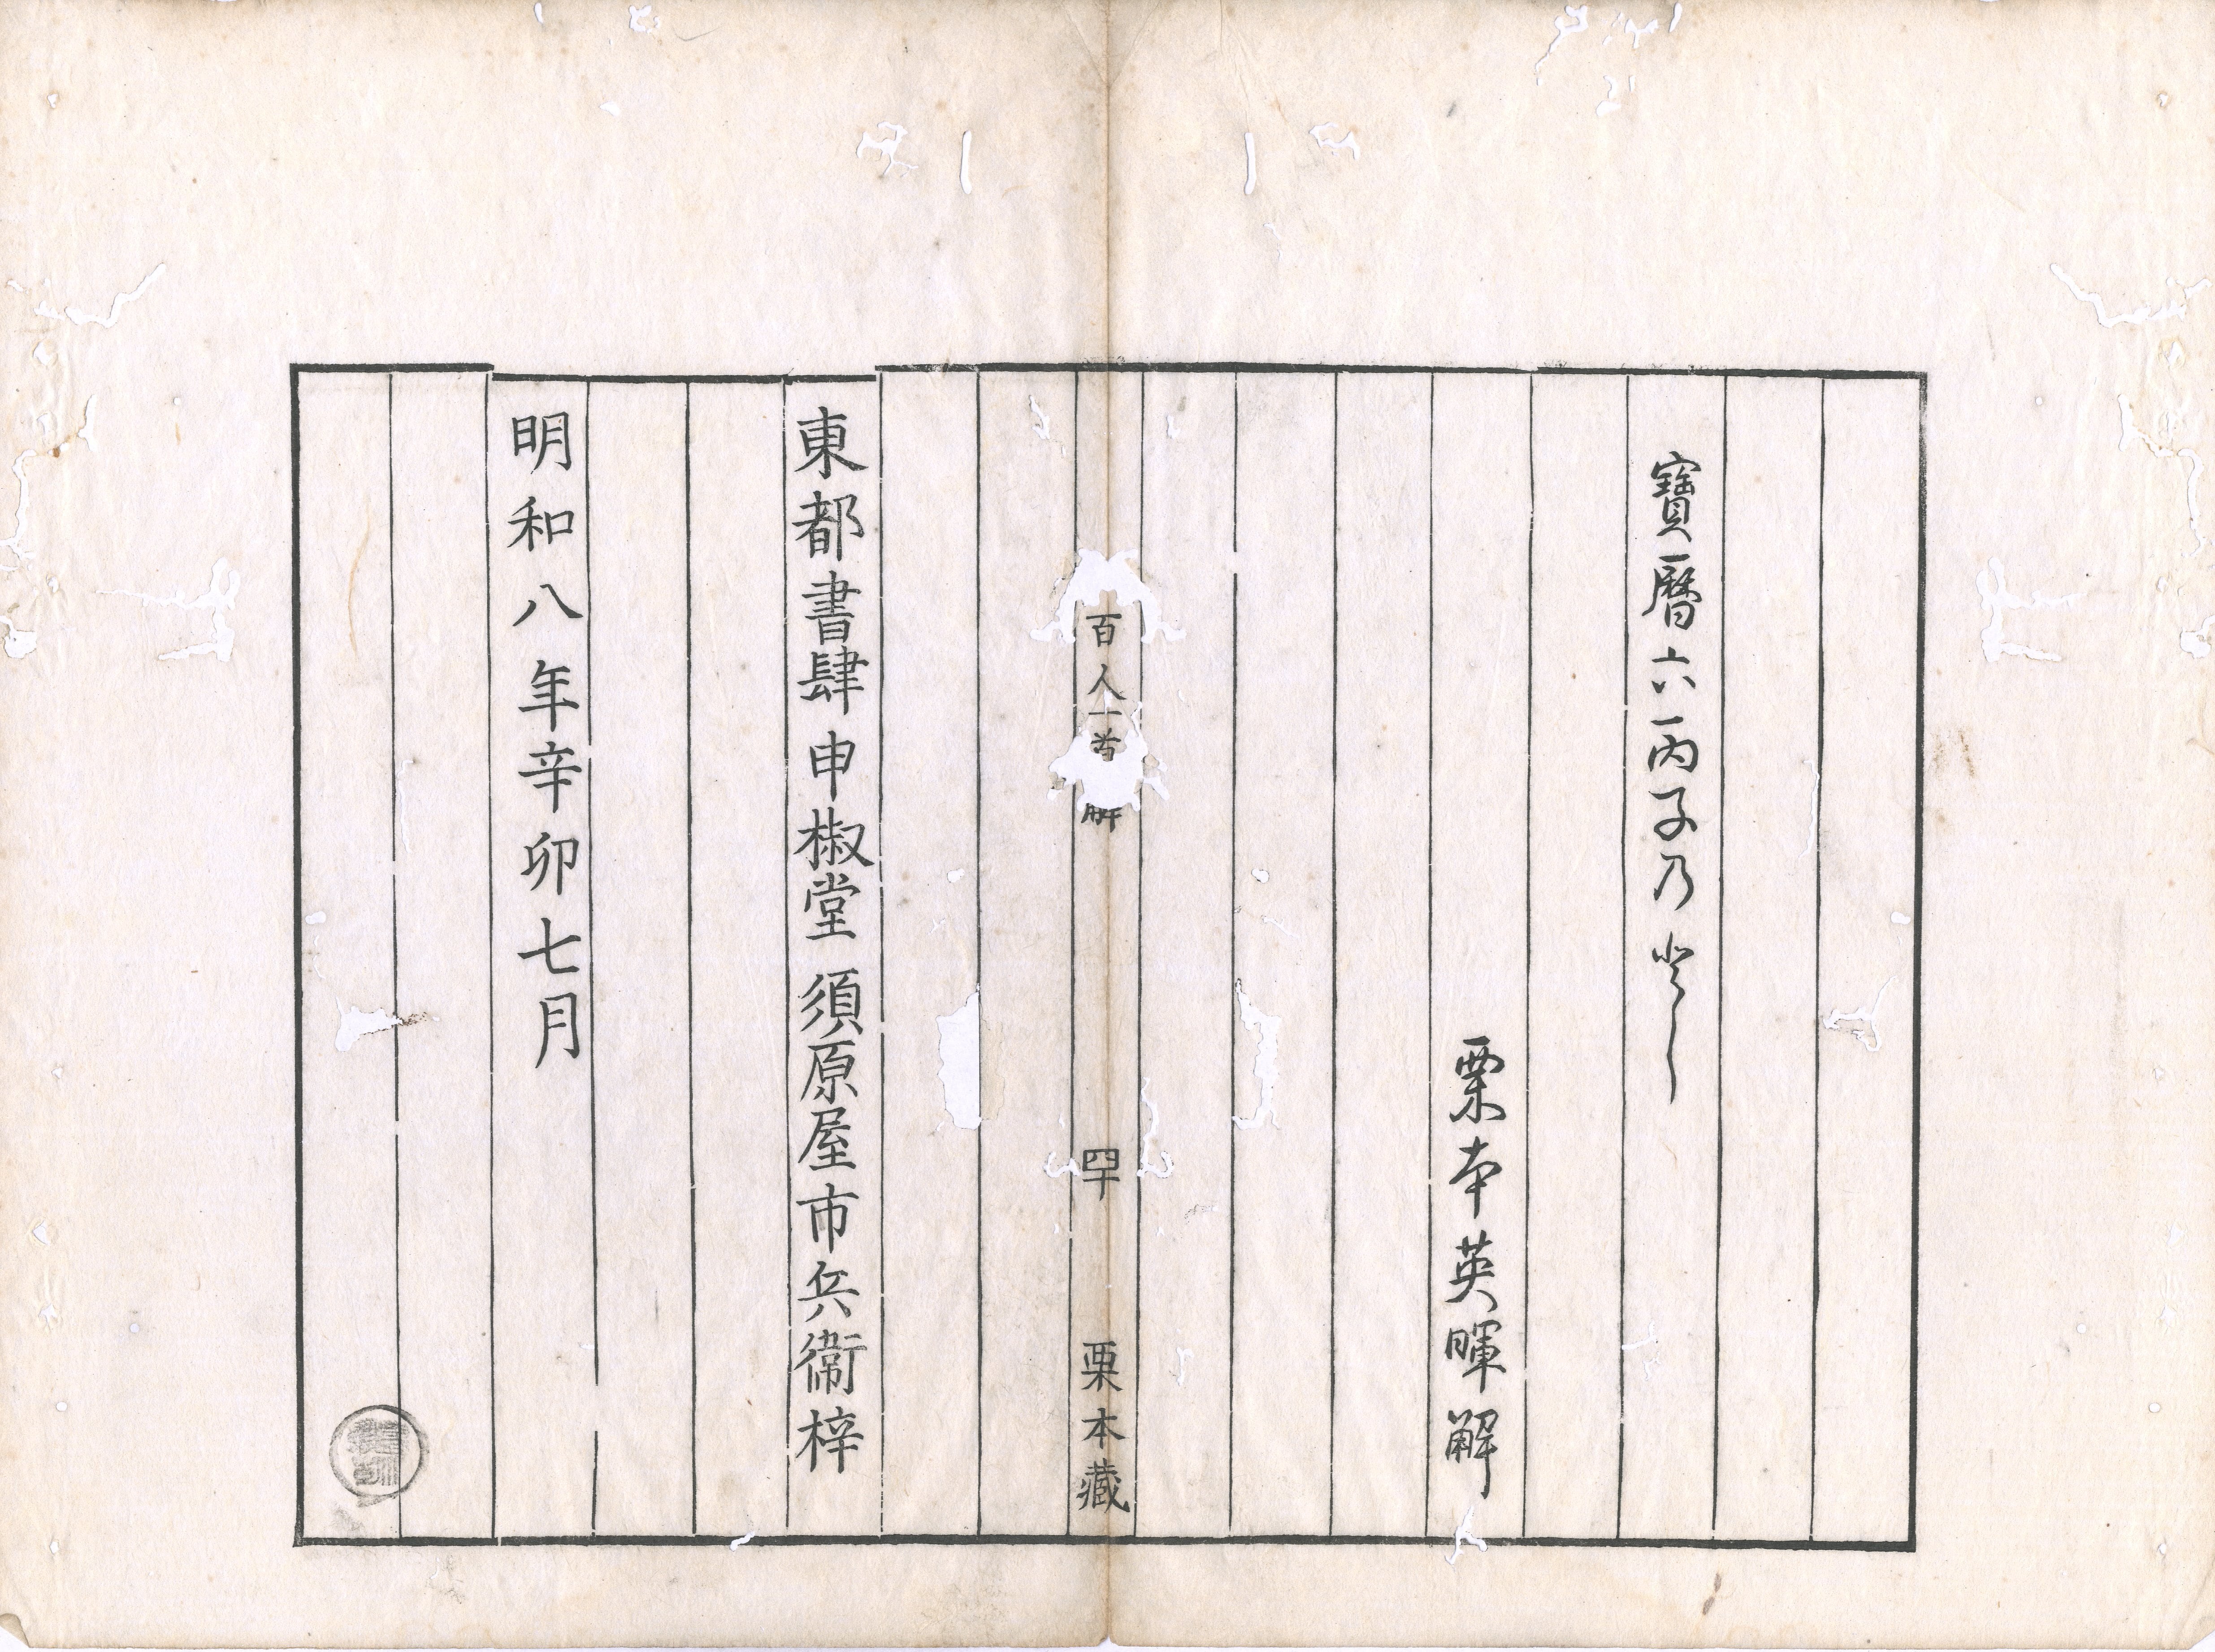 寶暦六丙子乃とし
栗本英暉解
百人一首
解
四十
栗本藏
東都書肆申椒堂須原屋市兵衞梓
明和八年辛卯七月